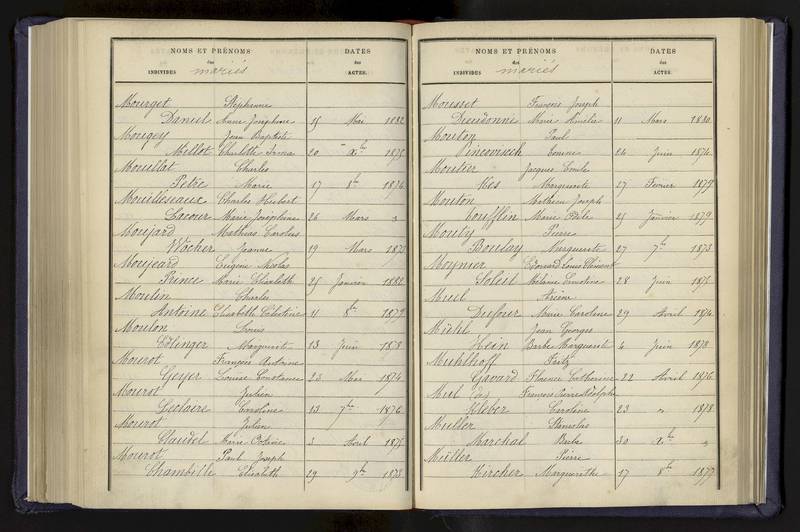 NOMS ET PRÉNOMS DATES
des des
INDIVIDUS mariés ACTES.
Mourget Stéphane
Daniel Anne Joséphine 15 Mai 1882
Mougey Jean Baptiste
Millot Charlotte 20 Xbre 1875
Mouillat Charles
Petre Marie 17 8bre 1876
Mouilleseaux Charles Hubert
Lacour Marie Joséphine 26 Mars
Moujard Mathias Carolus
Wacher Jeanne 19 Mars 1873
Moujeard Eugène Nicolas
Prince Marie Elisabeth 25 Janvier 1882
Moulin Charles
Antoine Elisabeth Célestine 11 8bre 1879
Moulon Louis
Ellinger Marguerite 13 Juin 1878
Mourot François Antoine
Geyer Louise Constance 23 Mai 1874
Mourot Julien
Leclaire Caroline 13 7bre 1876
Mourot Julien
Claudel Marie 3 Avril 1875
Mourot Paul Joseph
Chambille Elisabeth 29 9bre 1873
NOMS ET PRÉNOMS DATES
des des
INDIVIDUS mariés ACTES.
Mousset François Joseph
Dieudonné Marie Amélie 11 Mars 1880
Mouton Paul
Louise 26 Juin 1876
Moutier Jacques Emile
Kes Marguerite 27 Fevrier 1879
Mouton Mathieu Joseph
Marie Odile 25 Janvier 1879
Mouty Pierre
Boulay Marguerite 27 7bre 1873
Moynier Edouard Louis Clément
Soleil Mélanie Ernestine 28 Juin 1875
Muel Arsène
Dufour Marie Caroline 29 Avril 1874
Mühl Jean Georges
Hein Barbe Marguerite 4 Juin 1878
Muhlhoff Fritz
Gavard Florence Catherine 22 Avril 1876
Muel François Pierre Adolphe
Kléber Caroline 23 " 1878
Muller Stanislas
Marchal Barbe 30 Xbre "
Müller Pierre
Kircher Marguerithe 17 8bre 1877